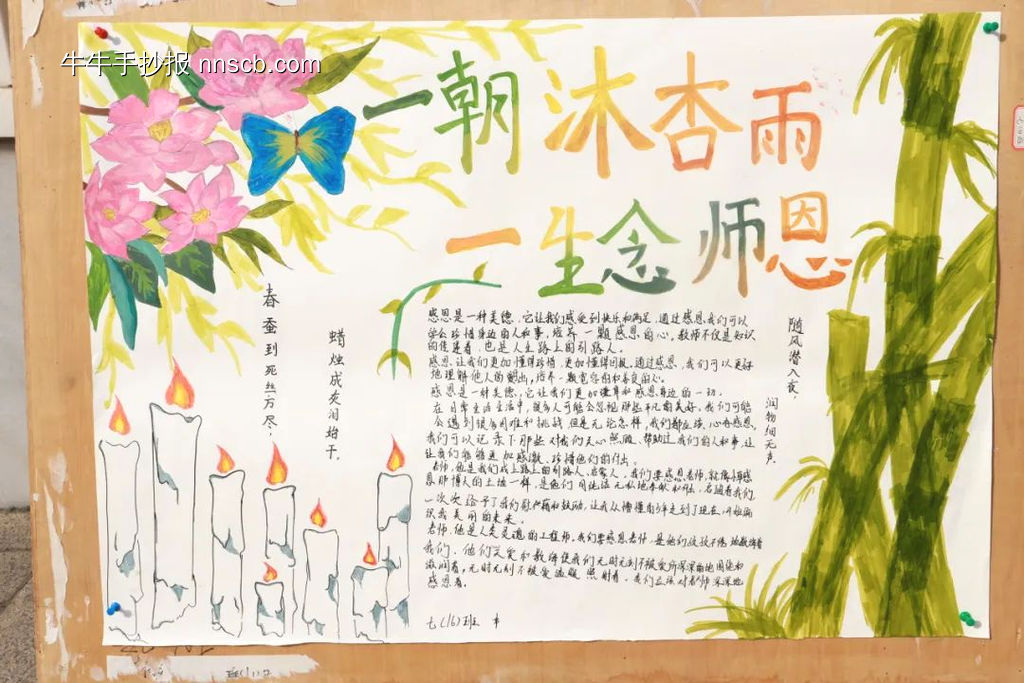 牛牛手抄报 nnscb.com
一朝沐杏雨
一生念师恩
春蚕到死丝方尽，
蜡烛成灰泪始干。
随风潜入夜，
润物细无声。
感恩是一种美德，它让我们感受到快乐和满足，通过感恩，我们可以
学会珍惜身边的人和事，培养一颗感恩的心，教师不仅是知识
的传递者，也是人生路上的引路人。
感恩让我们更加懂得珍惜，更加懂得回报，通过感恩，我们可以更好
地理解他人的付出，培养一颗宽容的和善良的心。
感恩是一种美德，它让我们更加谦卑和感恩身边的一切。
在日常生活生活中，很多人可能会忽视那些平凡的美好，我们可能
会遇到很多困难和挑战，但是无论怎样，我们都应该心存感恩，
我们可以记录下那些对我们关心照顾、帮助过我们的人和事，让
让我们能够更加感激、珍惜他们的付出。
老师，他是我们成上路上的引路人，我们要感恩老师，就像
恩那博大的土地一样，是他们用
一次次给予了我们的和鼓励，让我从懵懂的走到了现在
美丽的未来。
老师，他是人类灵魂的工程师，我们要感恩老师，是他们孜孜不倦地教诲着
我们，他们关爱和教诲使我们无时无刻不被爱所深深的地围绕和
滋润着，无时无刻不被爱温暖照射着，我们应该对老师深深地
感恩着。
七（16）班